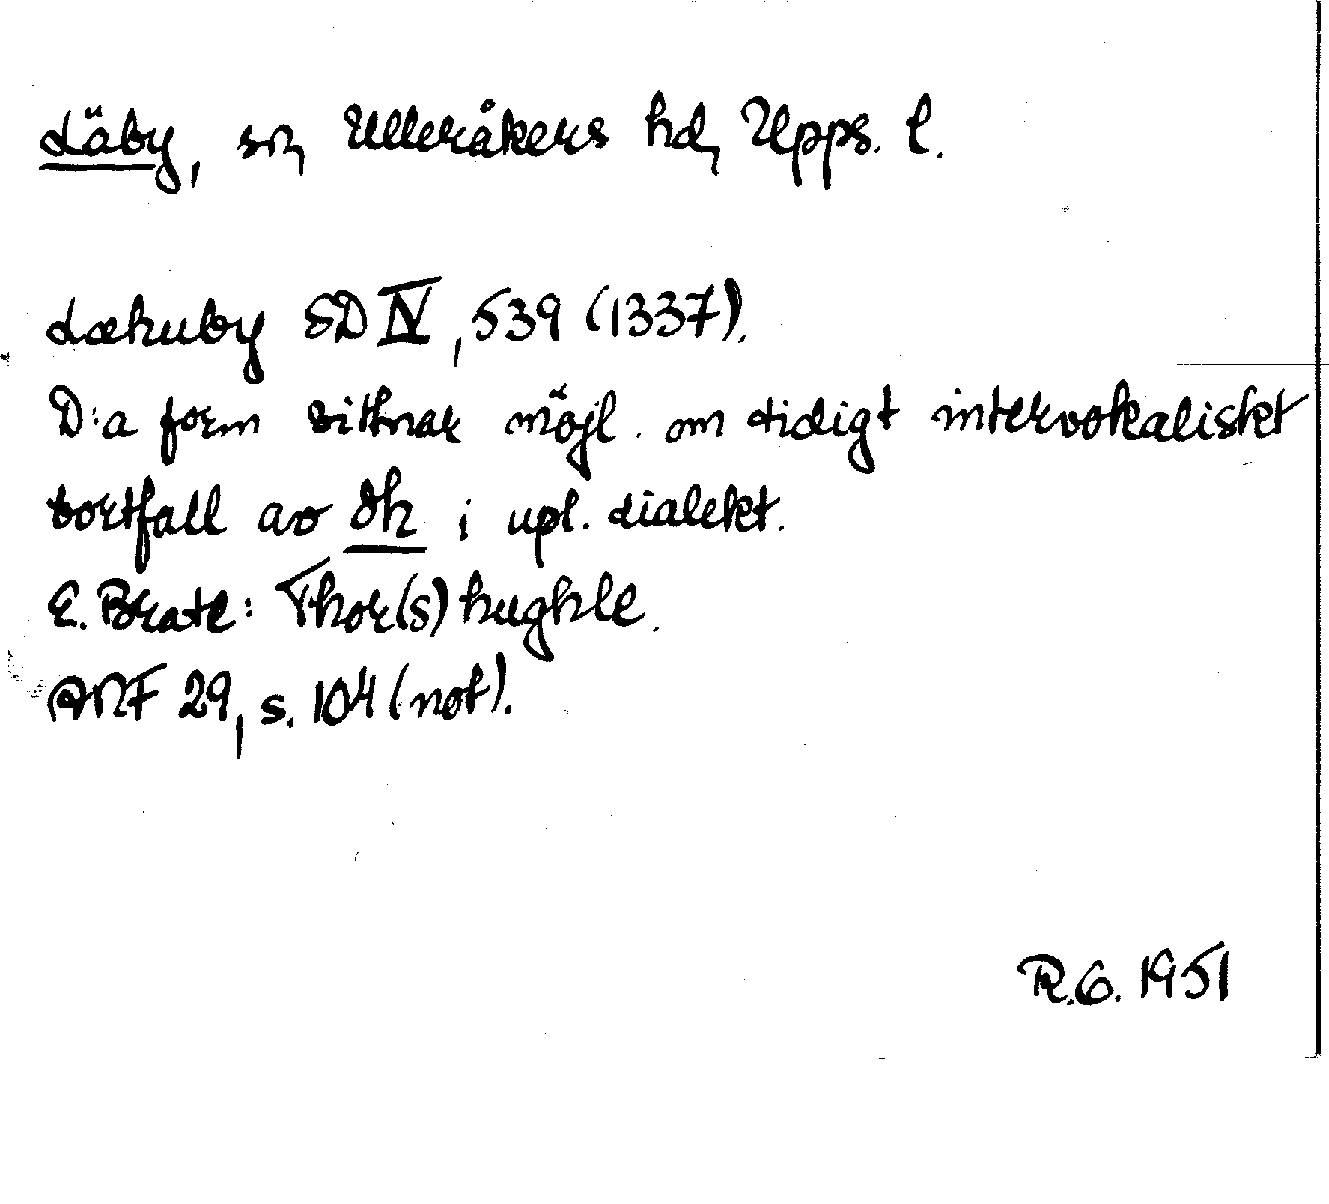 Läby, sn, Ulleråkers hd, Upps. l.
Læhuby SD IV, 539 (1337).
D:a form vittnar möjl. om tidigt intervokaliskt
bortfall av dh i upl. dialekt.
E. Brate: Thor(s)hughle.
ANF 29, s. 104 (not).
R.G. 1951